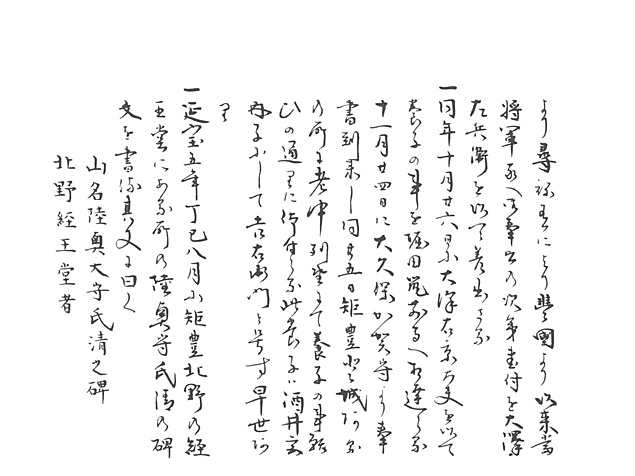 より尋被為にとり豊國より以来當
将軍家へ御奉公の次第書付を大澤
左兵衛を以て差出さる
一同年十月廿六日に大澤右京大夫を以て
養子の事を堀田筑前守へ相達らる
十一月廿四日に大久保加賀守より奉
書到来し同廿五日矩豊登城阿る
の所に老中列坐にて養子の事願
ひの通りに御付らる此養子ハ酒井
子にして 右衛門と号す早世阿
り
一延宝五年丁巳八月に矩豊北野の経
王堂にある所の陸奥守氏清の碑
文を書傳其文に曰く
山名陸奥大守氏清之碑
北野経王堂者